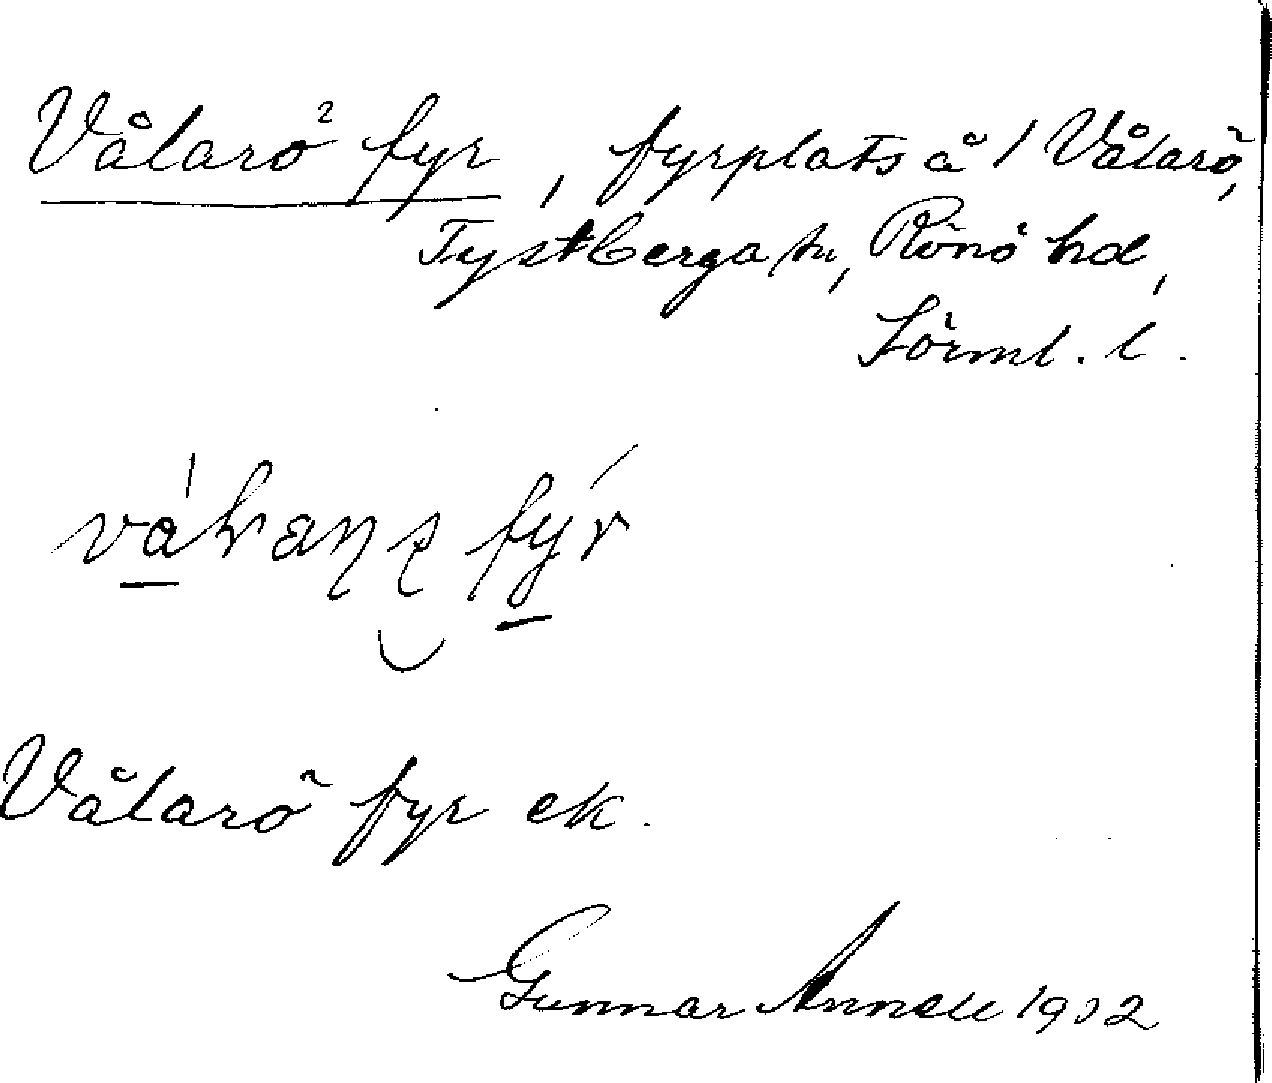 Vålarö fyr, fyrplats å 1 Vålarö,
Tystberga sn, Rönö hd,
Sörml. l.
Vålarö fyr ek.
Gunnar Annell 1932